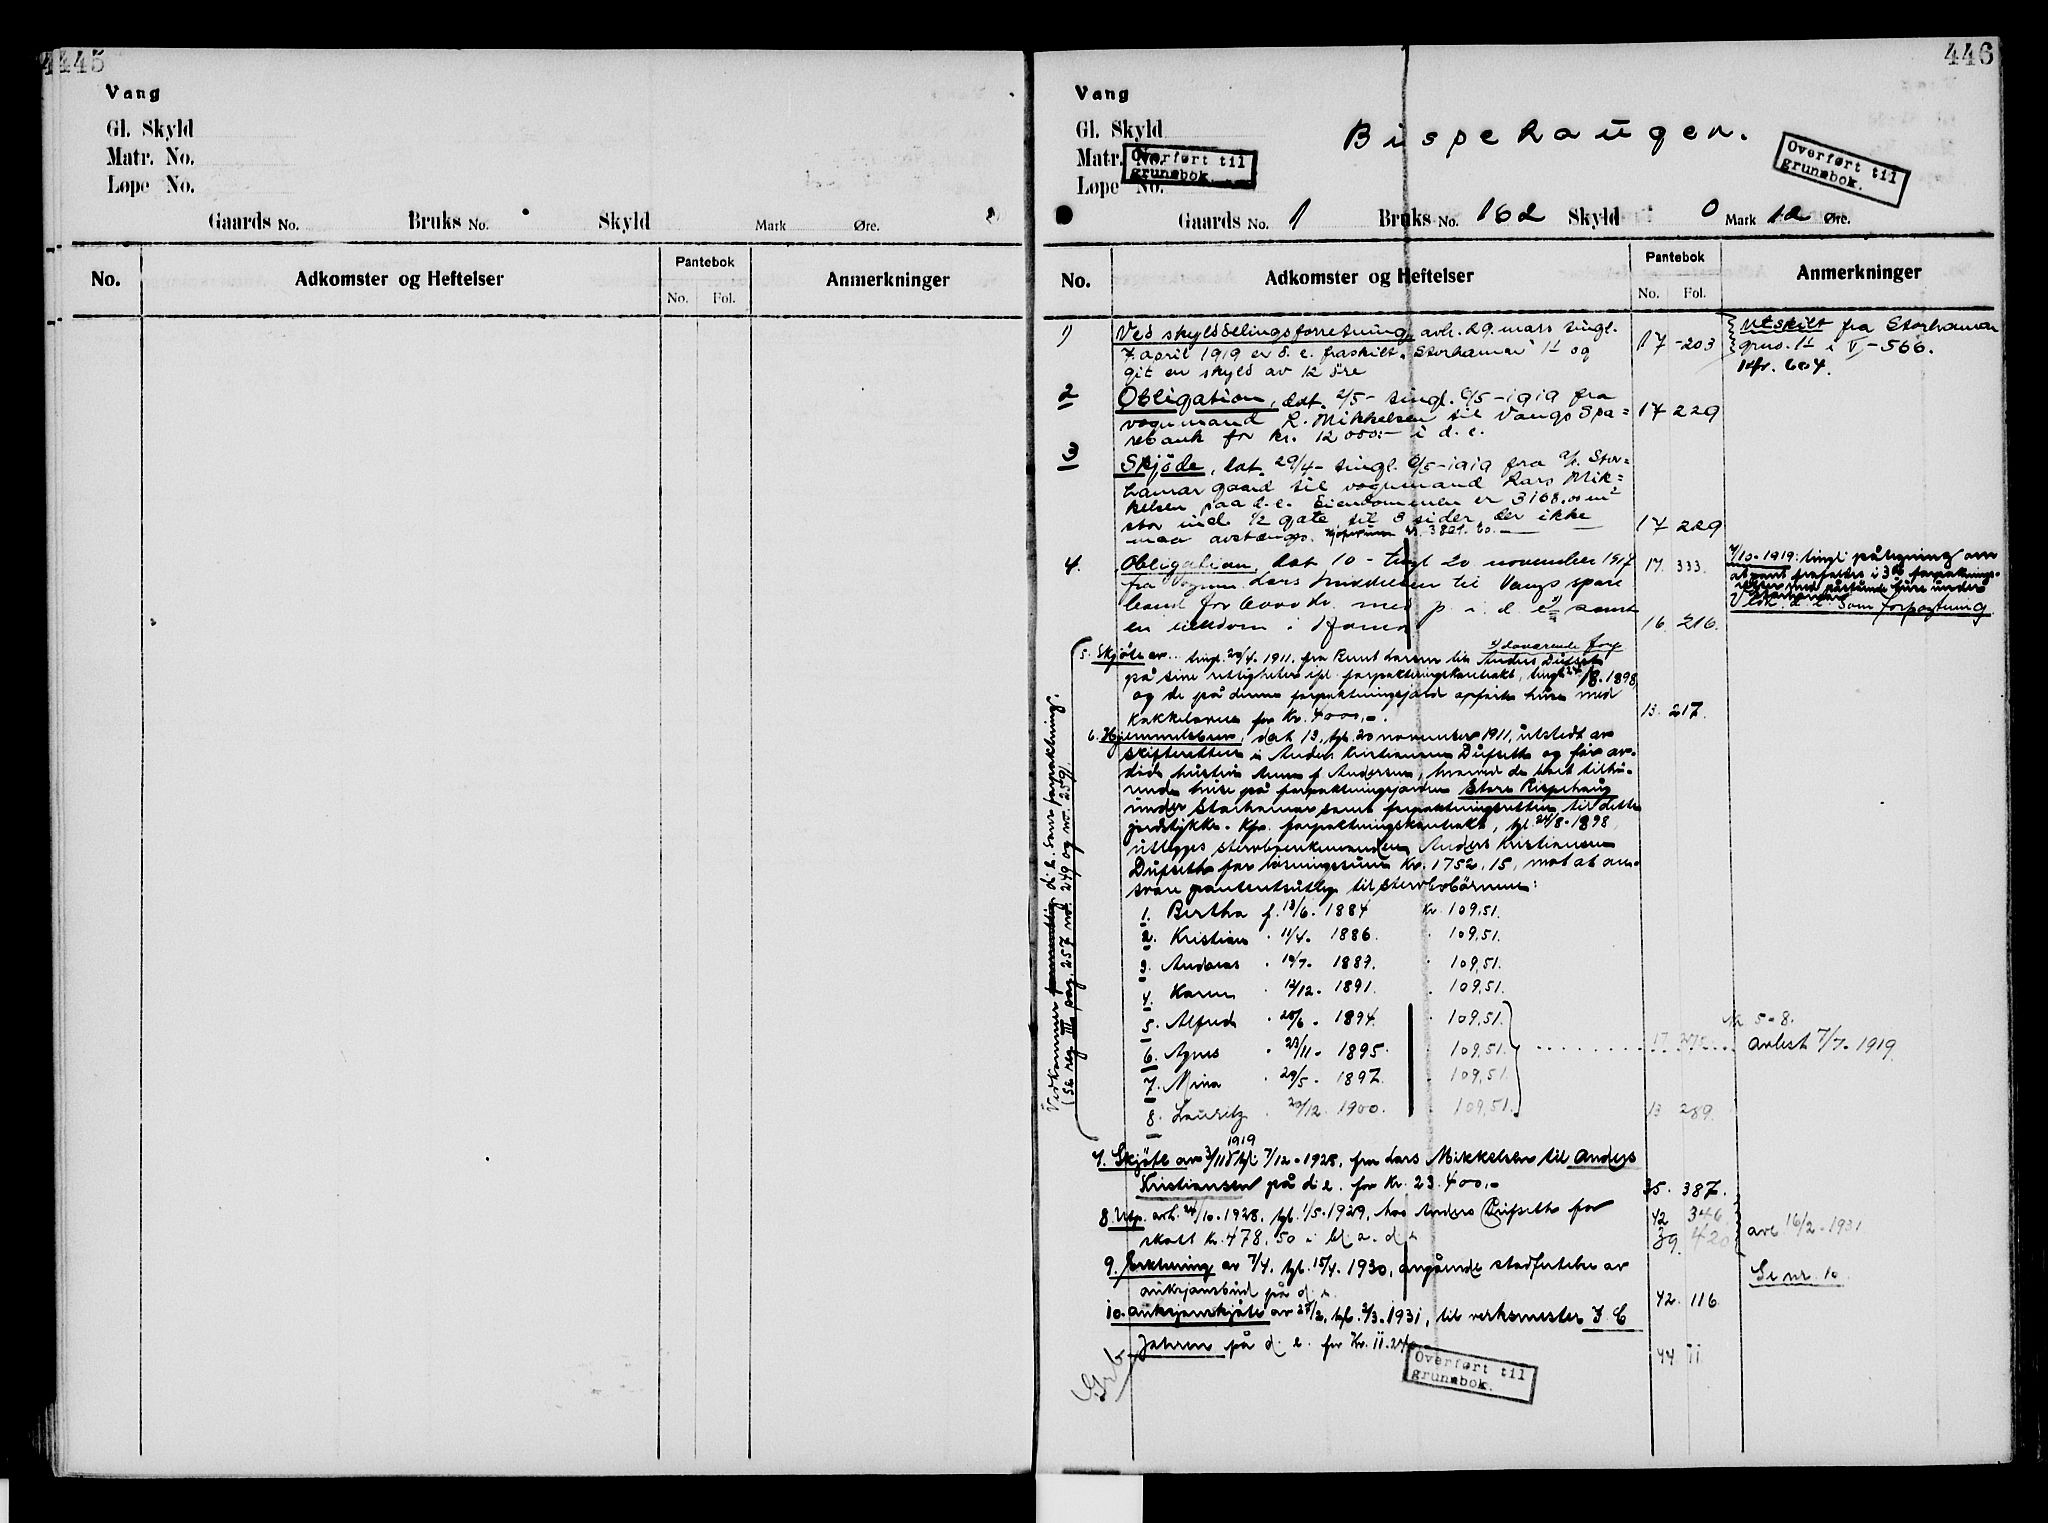 445
Vang
Gl. Skyld
Matr. No.
Lope No.
Gaards No. Bruks No. Skyld Mark Øre.
No. Adkomster og Heftelser Pantebok Anmerkninger
No. Fol.
446
Vang
Gl. Skyld
Bispehaugen.
Matr. No.
Lope No.
Overført til
grunnbok.
Overført til
grunnbok.
Gaards No. 1 Bruks No. 162 Skyld 0 Mark 12 Øre.
No. Adkomster og Heftelser Pantebok Anmerkninger
No. Fol.
1) Ved skylddelingsforretning avh. 29. mars tingl. 17 - 203 Utskilt fra Storhamar
7 april 1919 er d. e. fraskilt "Storhamar" 1/1 og gnr. 1/1 i V - 566.
git en skyld av 12 øre Kfr. 604.
2 Obligation, dat. 2/5 - tingl. 6/5 - 1919 fra 17 229
vognmand L. Mikkelsen til Vangs Spa=
rebank for kr. 12000:- i d. e.
3 Skjöde, dat. 29/4 - tingl. 6/5 - 1919 fra a/s Stor=
hamar gaard til vognmand Lars Mik=
kelsen paa d. e. Eiendommen er 3168.00 m2
stor incl. 1/2 gate til 3 sider, der ikke 17 229
maa avstænges.
4. Obligation, dat 10 - tingl 20 november 1917 17. 333. 7/10 - 1919: tingl. påtegning om
fra Vognm. Lars Mikkelsen til Vangs spare
bank for 6000 kr. med p. i d. e. samt Vedk. d. e. som forpagtning
en eiendom i Hamar 16. 216.
5. Skjöte av .. tingl. 20/4 - 1911. fra Knut Larsen til Anders Dufseth
på sine rettigheter ifl. forpaktningskontrakt, tingl. 24/8 - 1898,
og de på denne forpaktningsjord opførte huse med
kakkelovne for Kr. 4000,-. 13. 217.
6. Hjemmelsbrev, dat 13, tgl. 20 november 1911, utstedt av
skifteretten i Anders Kristiansen Dufseth og før av-
døde hustru Anne f. Andersen, hvorved de boet tilhö-
rende huse på forpaktningsjorden Store Bispehaug
under Storhamar samt forpaktningsretten til dette
jordstykke. Kfr. forpaktningskontrakt, tgl. 24/8 - 1898,
utlegges stervboenkemanden Anders Kristiansen
Dufseth for løsningssum Kr. 1752,15, mot at an-
svare panteutlæg til stervbobörnene:
1. Bertha f. 13/6. 1884 kr. 109,51.
2. Kristian . 11/4. 1886. . 109,51.
3. Andreas . 10/7. 1889. . 109,51.
4. Karen . 12/12. 1891. . 109,51.
5. Alfred . 20/6. 1894. . 109,51. Nr 5-8.
6. Agnes . 23/11. 1895. . 109,51. avlest 7/7 - 1919.
7. Mina . 29/5. 1897. . 109,51.
8. Lauritz . 20/12. 1900. . 109,51. 13 289.
Vedkommer d. e. som forpaktning.
(Se reg. III pag. 257 nr. 249 og nr. 259)
7. Skjöte av 3/11 1919 tgl. 7/12 - 1928, fra Lars Mikkelsen til Anders
Kristiansen på d. e. for Kr. 23.400,- 35. 387.
8. Utp. avh. 24/10 - 1928, tgl. 1/5 - 1929, hos Anders Dufseth for 42 346.
skatt kr. 478,50 i bl. a. d. e. 39. 420 avl. 16/2 - 1931
9. Erklæring av 7/4, tgl. 15/4. 1930, angående stadfestelse av Se nr. 10.
auksjonsbud på d. e. 42. 116.
10. Auksjonsskjöte av 25/2, tgl. 2/3. 1931, til verksmester J. C
Jahren på d. e. for Kr. 11.240,- 44 11
Overført til
grunnbok.